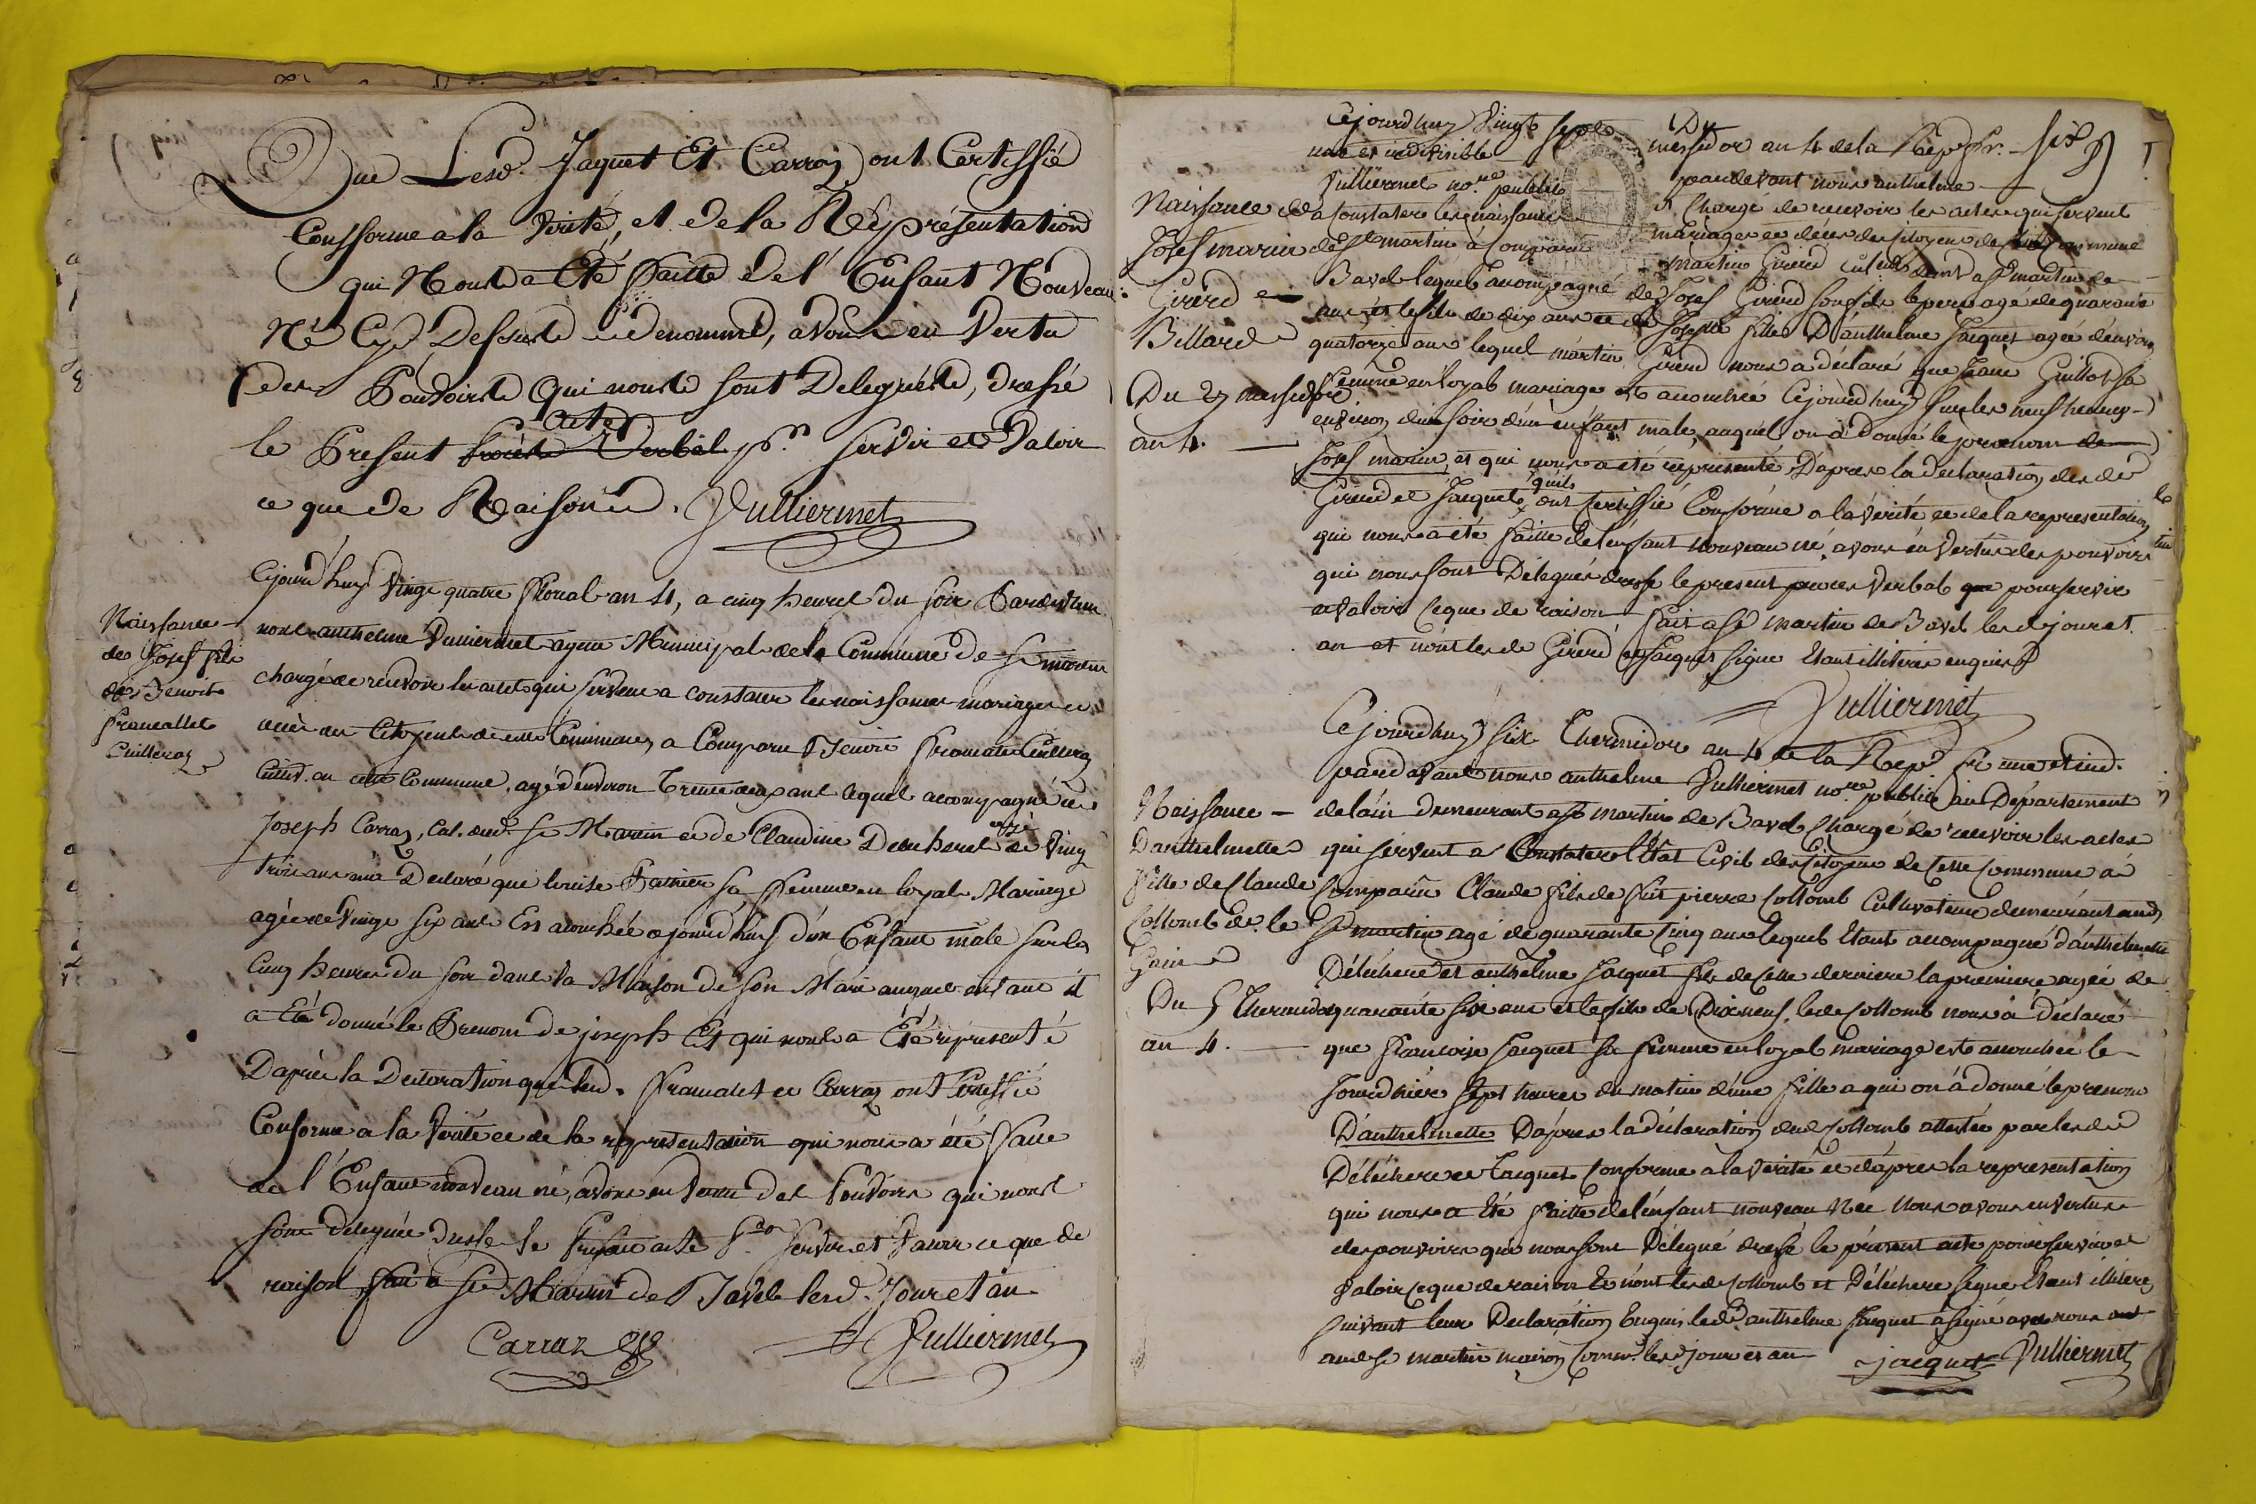 Que Lesd. Jaquet Et Carraz ont Certiffié
Consforme a la Verité, et de la Réprésentation
qui Nous a Eté faitte de l'Enfant Nouveau
Né Cy Dessus denommé, avons en Vertu
des Pouvoirs Qui nous sont Delegués, dressé
acte
le Présent Procès Verbal pr. servir et Valoir
ce que de Raison. Vulliermet
Naissance
de Josef fils
de Benoit
francallet
Cuilleraz
Cejourd'huy Vingt quatre floreal an 4, a cinq heures du soir Pardevant
nous anthelme Vulliermet agent Municipal de la Commune de St martin
chargé de recevoir les actes qui servent a constater les naissances mariages et
décès des Citoyens de cette Commune, a Comparu Benoit francallet Cuilleraz
Cultiv. en cette Commune, agé d'environ Trente deux ans lequel accompagné de
Joseph Carraz, Cult. aud. St Martin et de Claudine Deschenel agé de Ving
trois ans m'a Declaré que Louise Pathier sa femme en loyal Mariage
agée de Vingt six ans Est acouchée ajourd'huy d'un Enfant male sur les
Cinq heures du soir dans la Maison de son Mari auquel enfant il
a Eté donné le Prenom de joseph Et qui nous a Eté réprésenté
D'aprés la Declaration que lesd. francallet et Carraz ont Certiffié
Conforme a la Vérité et de la représentation qui nous a été faite
de l'Enfant nouveau né, avons en Vertu des Pouvoirs qui nous
sont delegués dressé le présent acte Pr. servir et Valoir ce que de
raison fait a St Martin de Bavel lesd. Jour et an
Carraz Vulliermet
Naissance de
Josef marin
Girerd
Billard
Du 27 messidor
an 4.
Cejourd'huy Vingt sept Du messidor an 4 de la Rep. fr. six
une et indivisible pardevant nous anthelme
Vulliermet no.re public chargé de recevoir les actes qui servent
à Constater les naissances mariages et deces des citoyens de cette Commune
de St martin à Comparu martin Girerd cult. dem.t a St martin de
Bavel lequel accompagné de Josef Girerd son fils le pere agé de quarante
ans et le fils de dix ans et de Josepte fille D'anthelme Jacquet agée d'environ
quatorze ans lequel martin Girerd nous a déclaré que Jeane Guillot sa
femme en loyal mariage est acouchée Cejourd'huy sur les neuf heures
environ du soir d'un enfant male auquel on a Donné le prenom de
Josef marin, et qui nous a été représenté D'apres la declaration des d.
Girerd et Jacquet, quils ont Certiffié Conforme a la vérité et de la representation
qui nous a été faitte de l'enfant nouveau né, avons en Vertu des pouvoirs
qui nous sont Délegués dressé le present proces Verbal que pour servir
et valoir Ceque de raison fait a St martin de Bavel lesd. jour et
an et n'ont lesd. Girerd et Jacquet signé Etant illiteres enquis
Vulliermet
Naissance
D'anthelmette
fille de Claude
Collomb de. le
Du 5 Thermidor
an 4.
Cejourd'huy six Thermidor an 4 de la Rep. fr. une et ind.
pardevant nous anthelme Vulliermet no.re public au Département
de l'ain demeurant a St martin de Bavel, Chargé de recevoir les actes
qui servent a Constater l'Etat Civil des Citoyens de Cette Commune à
Comparu Claude fils de feu pierre Collomb Cultivateur demeurant aud.
St martin agé de quarante Cinq ans lequel Etant accompagné d'anthelmette
Déléchere et anthelme Jacquet fils de Cette derniere la premiere agée de
quarante six ans et le fils de Dix neuf, led. Collomb nous à déclaré
que françoise Jacquet sa femme en loyal mariage est acouchée le
Jourd'hier sept heures du matin d'une fille a qui on à donné le prenom
D'anthelmette D'apres la déclaration dud. Collomb attestée par lesd.
Déléchere et Jacquet Conforme a la Vérité et d'après la representation
qui nous a Eté faitte de l'enfant nouveau Née Nous avons en vertu
des pouvoirs qui nous sont Délegué dressé le present acte pour servir et
Valoir Ceque de raison Et n'ont lesd. Collomb et Déléchere signé Etant illiteres
suivant leur Declaration Enquis led. anthelme Jacquet à signé avec nous
aud. St martin maison Comm. lesd. jour et an jacquet Vulliermet